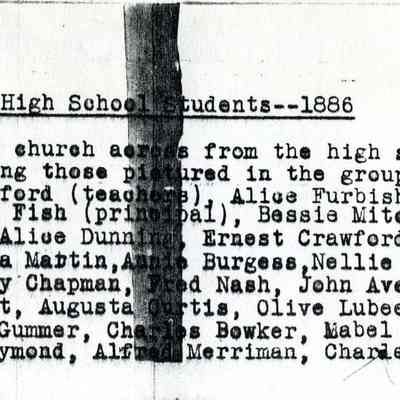 High School Students--1886
church across from the high s
ng those pictured in the group
ford (teachers), Alice Furbish
Fish (principal), Bessie Mite
Alice Dunning, Ernest Crawford
a Martin,Annie Burgess,Nellie
y Chapman, Fred Nash, John Ave
t, Augusta Curtis, Olive Lubee
Gummer, Charles Bowker, Mabel
ymond, Alfred Merriman, Charle